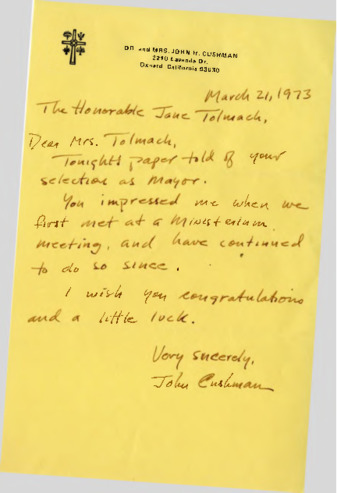 DR. and MRS. JOHN H. CUSHMAN
2210 Laurada Dr.
Oxnard California 93030
March 21, 1973
The Honorable Jane Tolmach,
Dear Mrs. Tolmach,
Tonight's paper told of your
selection as Mayor.
You impressed me when we
first met at a Ministerium
meeting, and have continued
to do so since.
I wish you congratulations
and a little luck.
Very sincerely,
John Cushman